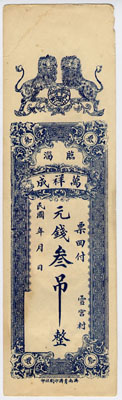 臨淄
萬祥成
票回付 雪宮村
元錢叁吊整
民國 年 月 日